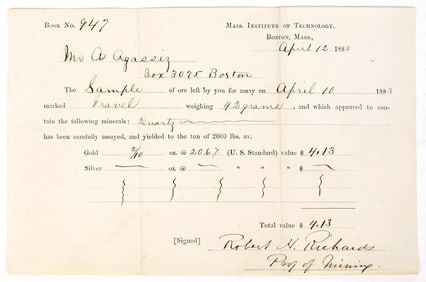 BOOK NO. 947
MASS. INSTITUTE OF TECHNOLOGY.
BOSTON, MASS.,
April 12 1883
Mr A Agassiz
Box 3095 Boston
The Sample of ore left by you for assay on April 10 1883
marked Travel weighing 42 grams, and which appeared to con-
tain the following minerals: Quartz
has been carefully assayed, and yielded to the ton of 2000 lbs. av.
Gold 2/10 oz. @ 20.67 (U. S. Standard) value $ 4.13
Silver oz. @ " " " $
Total value $ 4.13
[Signed] Robert H. Richards
Prof of Mining.